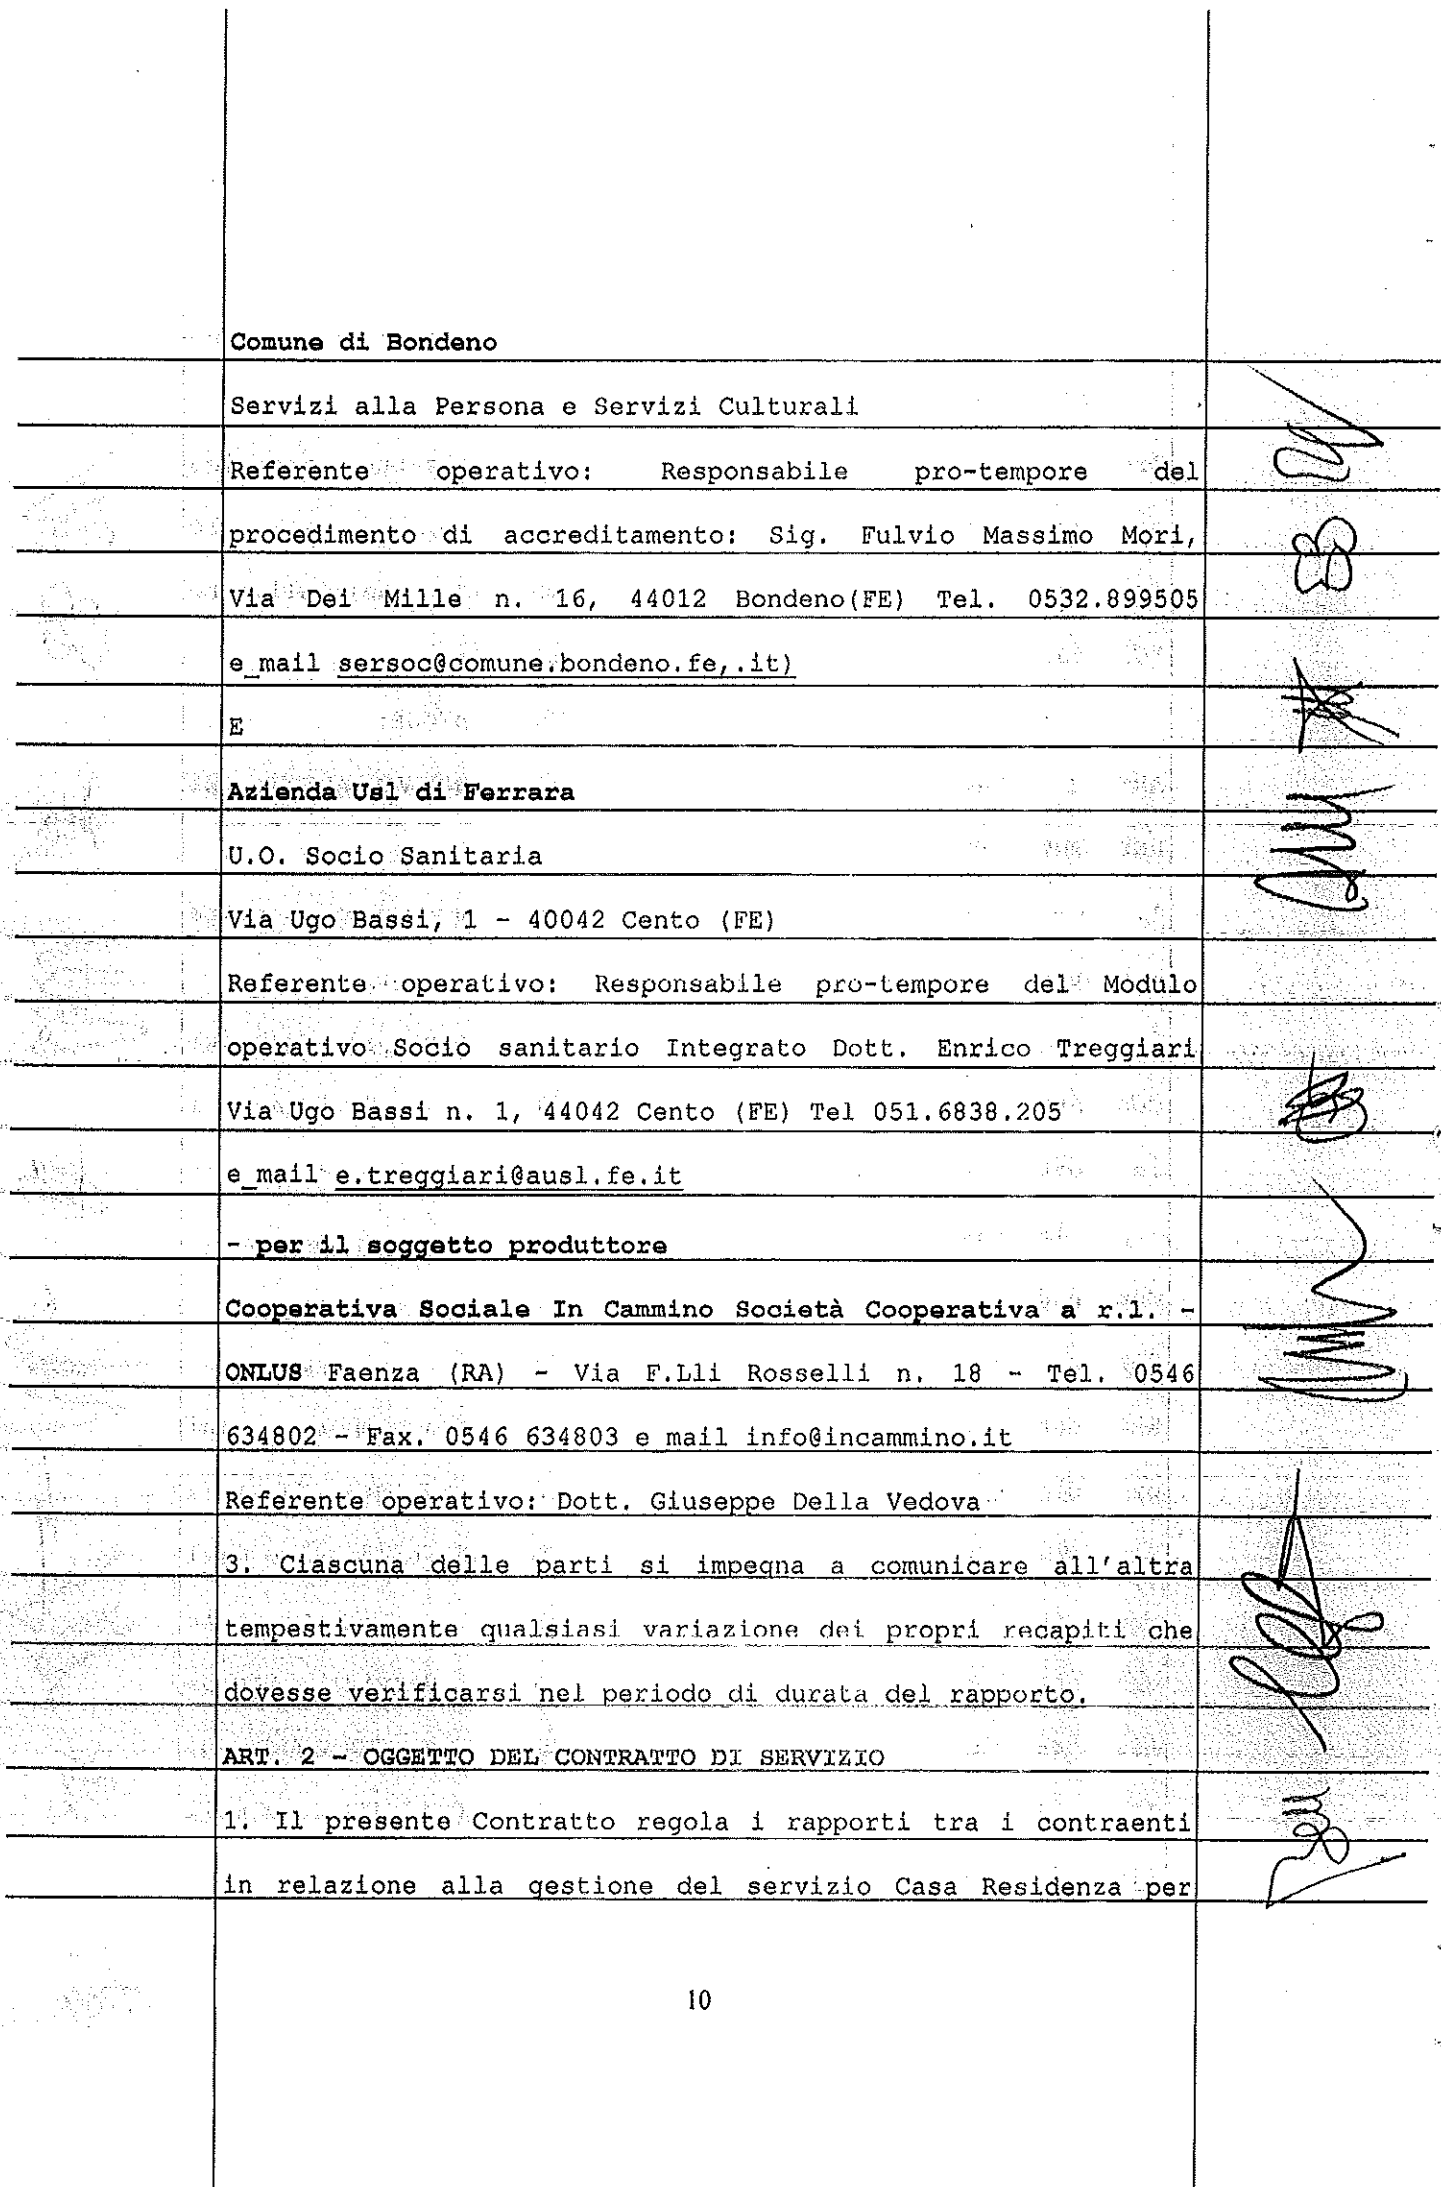 Comune di Bondeno
Servizi alla Persona e Servizi Culturali
Referente operativo: Responsabile pro-tempore del
procedimento di accreditamento: Sig. Fulvio Massimo Mori,
Via Dei Mille n. 16, 44012 Bondeno(FE) Tel. 0532.899505
e_mail sersoc@comune.bondeno.fe,.it)
E
Azienda Usl di Ferrara
U.O. Socio Sanitaria
Via Ugo Bassi, 1 - 40042 Cento (FE)
Referente operativo: Responsabile pro-tempore del Modulo
operativo Socio sanitario Integrato Dott. Enrico Treggiari
Via Ugo Bassi n. 1, 44042 Cento (FE) Tel 051.6838.205
e_mail e.treggiari@ausl.fe.it
- per il soggetto produttore
Cooperativa Sociale In Cammino Società Cooperativa a r.l. -
ONLUS Faenza (RA) - Via F.Lli Rosselli n. 18 - Tel. 0546
634802 - Fax. 0546 634803 e mail info@incammino.it
Referente operativo: Dott. Giuseppe Della Vedova
3. Ciascuna delle parti si impegna a comunicare all'altra
tempestivamente qualsiasi variazione dei propri recapiti che
dovesse verificarsi nel periodo di durata del rapporto.
ART. 2 - OGGETTO DEL CONTRATTO DI SERVIZIO
1. Il presente Contratto regola i rapporti tra i contraenti
in relazione alla gestione del servizio Casa Residenza per
10